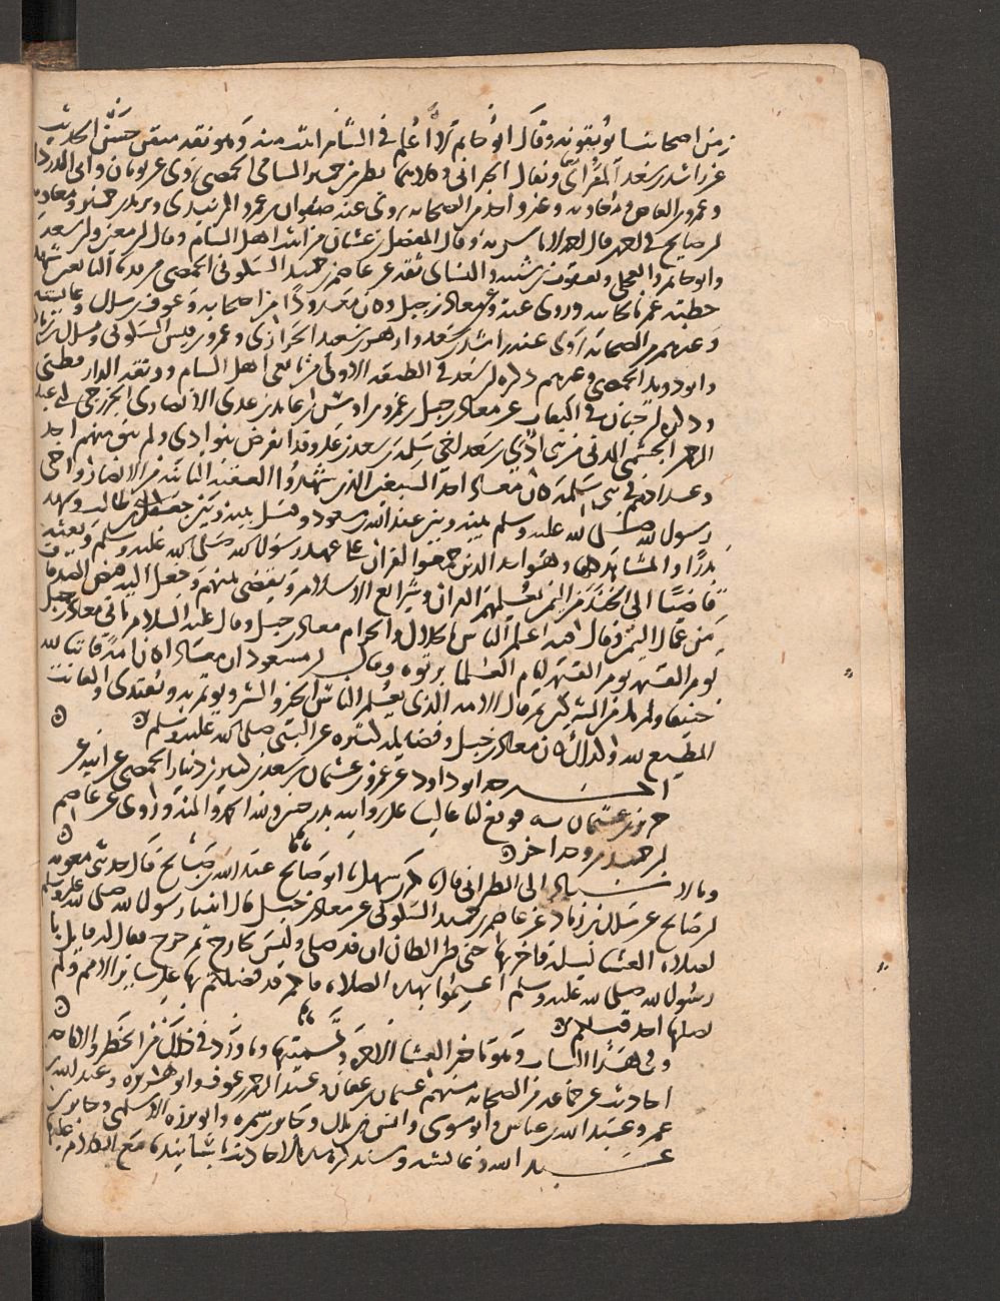 من اصحابنا يوثقونه وقال ابو حاتم لا اعلم في الشام اثبت منه وهو ثقة متقن حسن الحديث
عن راشد بن سعد المقرائي ويقال الحبراني وكلاهما بطن من حمير الشامي الحمصي روى عن ثوبان وابي الدردا
وعمرو بن العاص ومعاوية وغير واحد من الصحابة روى عنه صفوان بن عمرو الزبيدي وحريز ومعاوية
بن صالح قال احمد لا باس به وقال المفضل بن غسان من اثبت اهل الشام وقال ابن معين وابن سعد
وابو حاتم والعجلي ويعقوب بن شيبة والنسائي ثقة عن عاصم بن حميد السكوني الحمصي من التابعين شهد
خطبة عمر بالجابية وروى عنه وعن معاذ بن جبل وكان معدودا من اصحابه وعوف بن مالك وعايشة
وغيرهم من الصحابة روى عنه راشد بن سعد وازهر بن سعيد الحرازي وعمرو بن قيس السكوني ومالك بن زياد
وابو دويد الحمصي وغيرهم ذكره ابن سعد في الطبقة الاولى من تابعي اهل الشام ووثقه الدارقطني
وذكره ابن حبان في الثقات عن معاذ بن جبل بن عمرو بن اوس بن عايذ بن عدي الانصاري الخزرجي ابي عبد
الرحمن الجشمي المدني من بني ادي بن سعد اخي سلمة بن سعد بن علي وقد انقرض بنو ادي ولم يبق منهم احد
وعدادهم في بني سلمة كان معاذ احد السبعين الذين شهدوا العقبة الثانية من الانصار واخى
رسول الله صلى الله عليه وسلم بينه وبين عبد الله بن مسعود وقيل بينه وبين جعفر بن ابي طالب وشهد
بدرا والمشاهد كلها وهو احد الذين جمعوا القران على عهد رسول الله صلى الله عليه وسلم وبعثه
قاضيا الى الجند من اليمن يعلمهم القران وشرايع الاسلام ويقضي بينهم وجعل اليه قبض الصدقات
من عمال اليمن وقال انه اعلم الناس بالحلال والحرام معاذ بن جبل وقال عليه السلام ياتي معاذ بن جبل
يوم القيمة امام العلما برتوة وقال ابن مسعود ان معاذا كان امة قانتا لله
حنيفا ولم يك من المشركين ثم قال الامة الذي يعلم الناس الخير والشر ويوتم به ويقتدى والقانت
المطيع لله وكذلك كان معاذ بن جبل وفضايله كثيرة عن النبي صلى الله عليه وسلم
اخرجه ابو داود عن عمرو بن عثمان بن سعيد بن كثير بن دينار الحمصي عن ابيه عن
حريز بن عثمان به فوقع لنا عاليا على روايته بدرجتين ولله الحمد والمنة وروى عن عاصم
بن حميد من وجه اخر
وبالاسناد الى الطبراني قال بكر بن سهل ابو صالح عبد الله بن صالح قال حدثني معوية
بن صالح عن مالك بن زياد عن عاصم بن حميد السكوني عن معاذ بن جبل قال انتظرنا رسول الله صلى الله عليه وسلم
لصلاة العشا ليلة فاخر بها حتى ظن الظان ان قد صلى وليس بخارج ثم خرج فقال له قايل يا
رسول الله صلى الله عليه وسلم اعتموا بهذه الصلاة فانكم قد فضلتم بها على ساير الامم ولم
يصلها احد قبلكم
وفي هذا الباب وهو تاخير العشا الاخرة وتسميتها وما ورد في ذلك من الحظر والاباحة
احاديث عن جماعة من الصحابة منهم عثمان بن عفان وعبد الرحمن بن عوف وابو هريرة وعبد الله بن
عمر وعبد الله بن عباس وابو موسى وانس بن مالك وجابر بن سمرة وابو برزة الاسلمي وجابر بن
عبد الله وعايشة وسنذكر هذه الاحاديث باسانيدها مع الكلام عليها